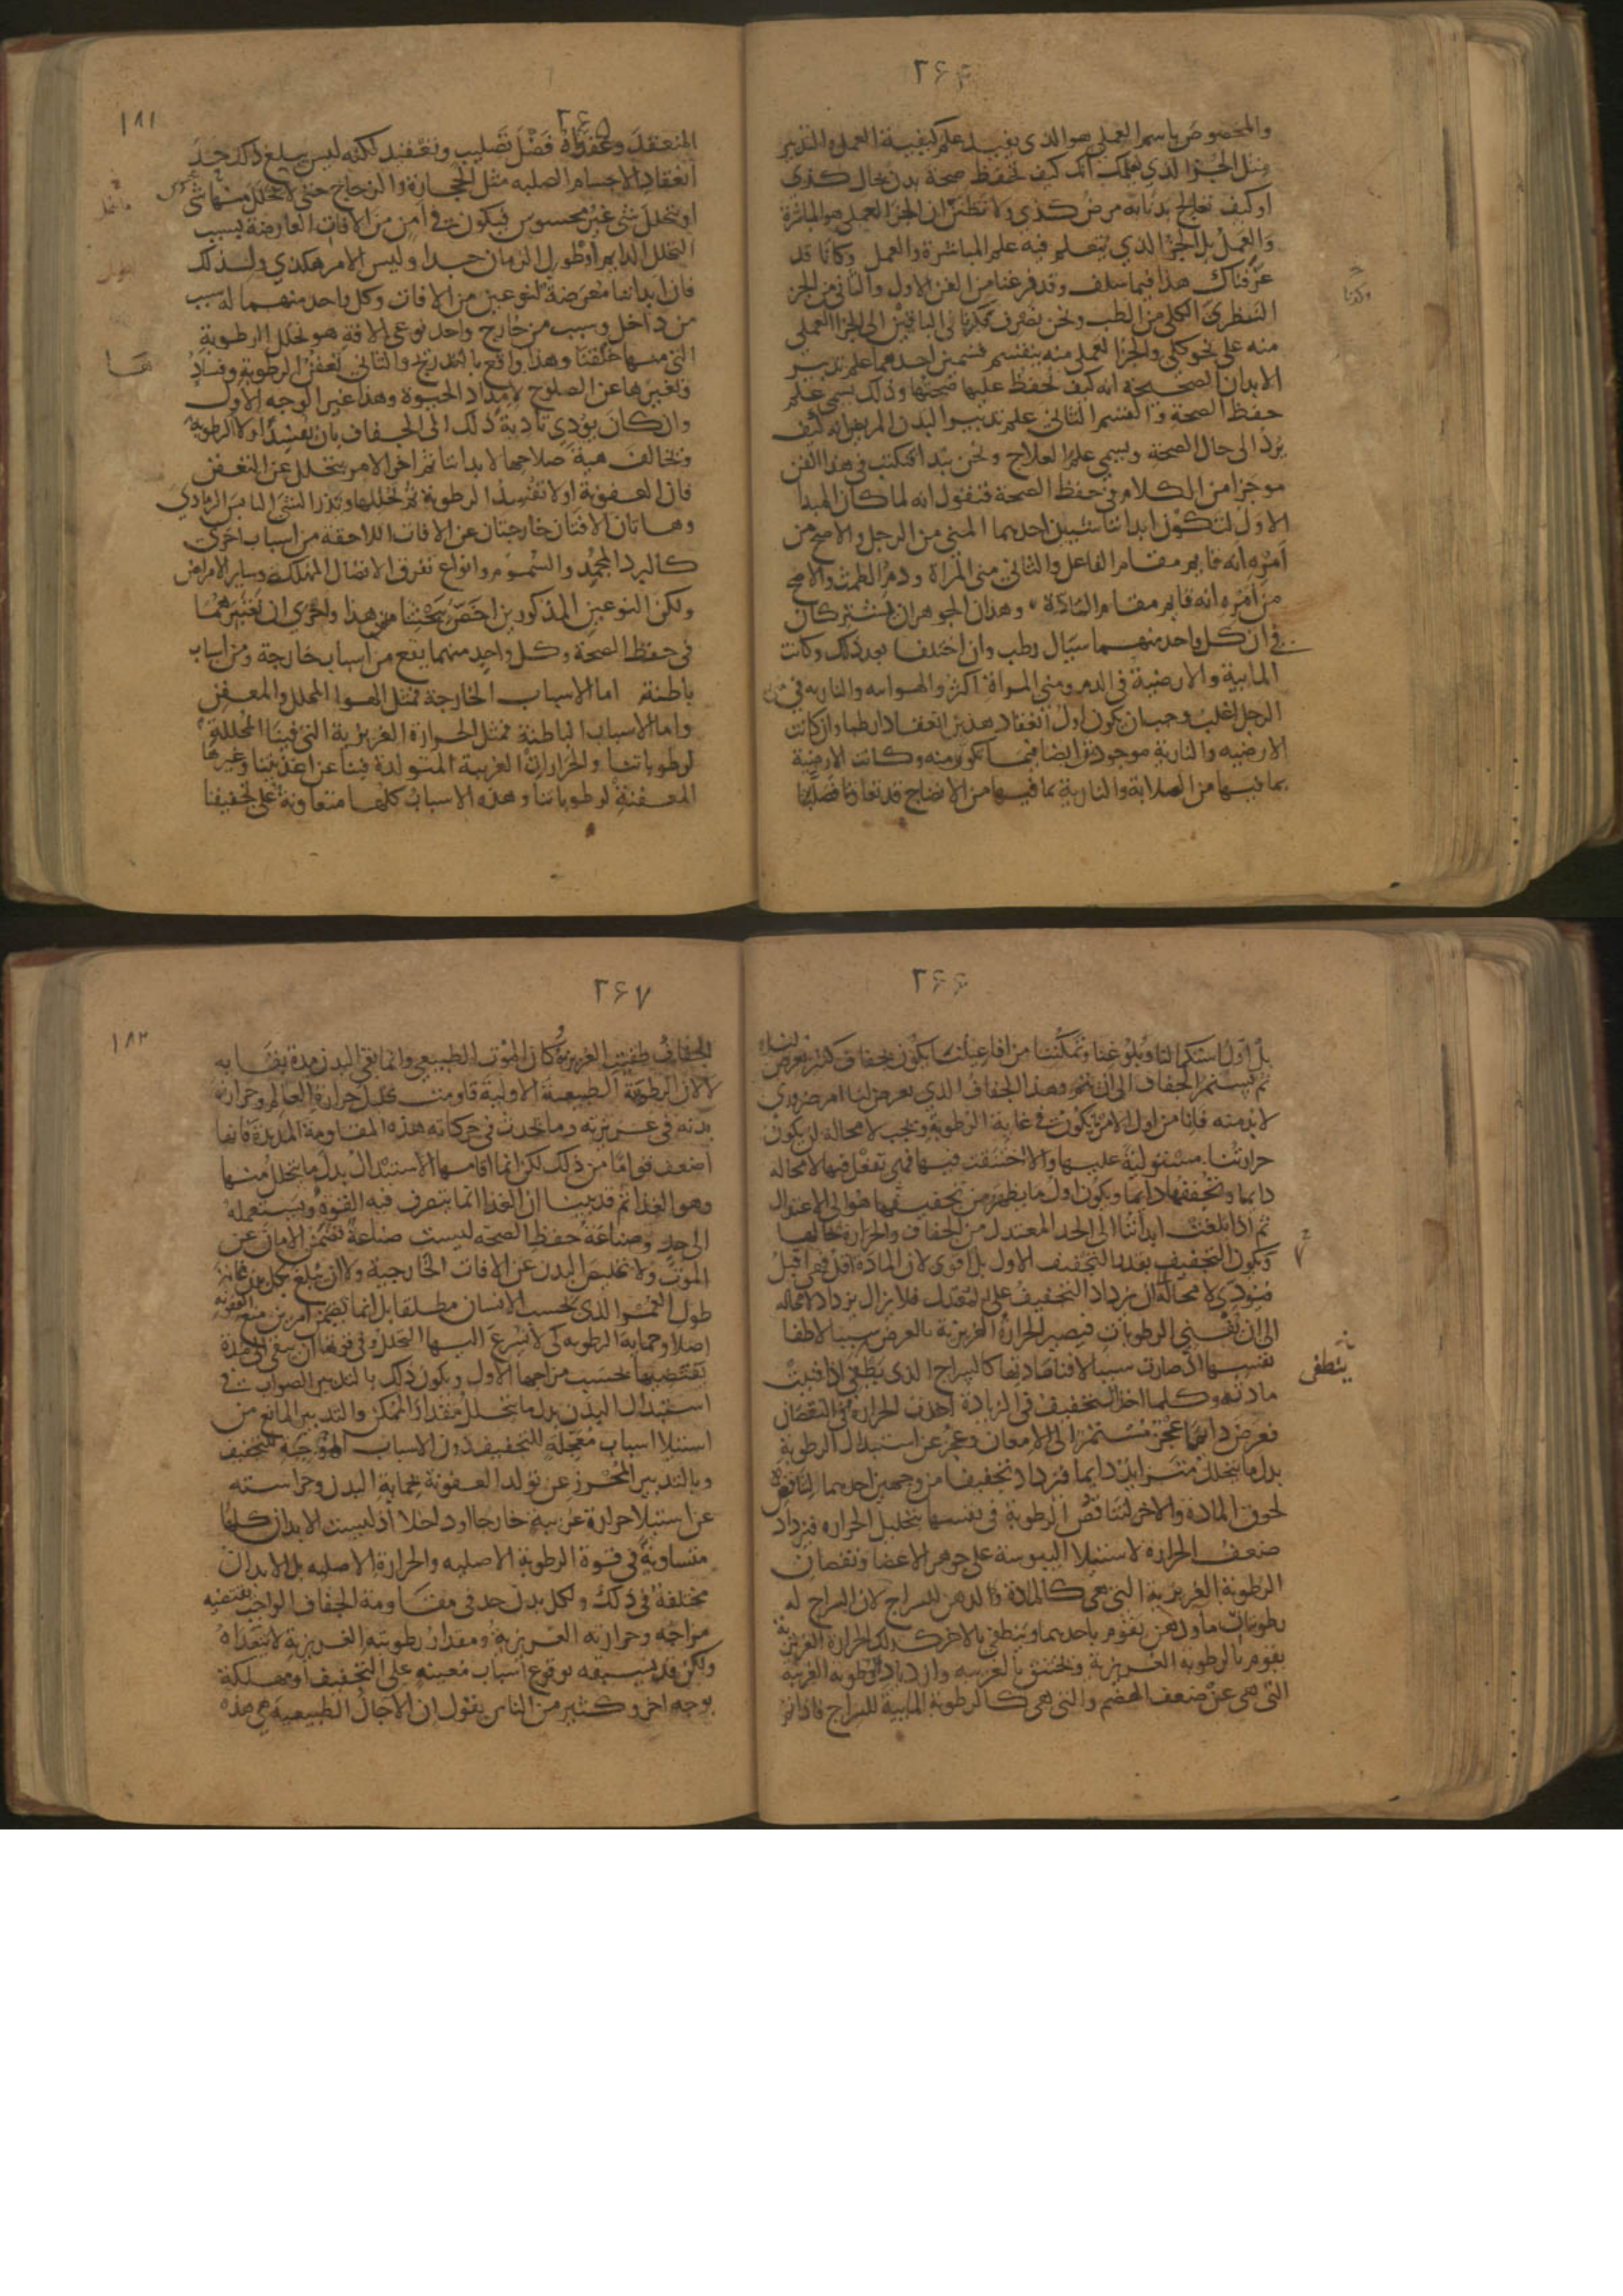 ۲۶۴
والمخصوص باسم العملي هو الذي يفيد علم كيفية العمل والتدبير
مثل الجزؤ الذي يعلمك انك كيف تحفظ صحة بدن بحال كذى
او كيف تعالج بدنا به مرض كذى ولا تظنن ان الجزؤ العملي هو المباشرة
والعمل بل الجزؤ الذي يتعلم فيه علم المباشرة والعمل وكانا قد
عرفناك هذا فيما سلف وقد فرغنا من الفن الاول والثاني من الجزء
النظري الكلي من الطب ونحن نصرف ذكرنا في الباقيين الى الجزا العملي
منه على نحو كلي والجزا العملي منه ينقسم قسمين احدهما علم تدبير
الابدان الصحيحة انه كيف تحفظ عليها صحتها وذلك يسمى علم
حفظ الصحة والقسم الثاني علم تدبير البدن المريض انه كيف
يرد الى حال الصحة ويسمى علم العلاج ونحن نبدا فنكتب في هذا الفن
موجزا من الكلام في حفظ الصحة فنقول انه لما كان المبدا
الاول لتكون ابداننا شيين احدهما المني من الرجل والاصح من
امره انه قايم مقام الفاعل والثاني مني المراة ودم الطمث والاصح
من امره انه قايم مقام المادة وهذان الجوهران مشتركان
في ان كل واحد منهما سيال رطب وان اختلفا بعد ذلك وكانت
المايية والارضية في الدم ومني المراة اكثر والهواييه والناريه في مني
الرجل اغلب وجب ان يكون اول انعقاد هذين انعقادا رطبا وان كانت
الارضيه والنارية موجودتين ايضا فيما تكون منه وكانت الارضية
بما فيها من الصلابة والنارية بما فيها من الانضاج قد تعاونا فصلبا
وكنا
۲۶۵
۱۸۱
المنعقد وعقداه فضل تصليب وتعقيد لكنه ليس يبلغ ذلك حد
انعقاد الاجسام الصلبه مثل الحجارة والزجاج حتى لا يتحلل منها شي
او يتحلل شي غير محسوس فيكون في امن من الافات العارضة بسبب
التحلل الدايم او طول الزمان جدا وليس الامر هكذي ولذلك
فان ابداننا معرضة لنوعين من الافات وكل واحد منهما له سبب
من داخل وسبب من خارج واحد نوعي الافة هو تحلل الرطوبة
التي منها خلقنا وهذا واقع بالتدريج والثاني تعفن الرطوبة وفساد
وتغيرها عن الصلوح لامداد الحيوة وهذا غير الوجه الاول
وان كان يؤدي تادية ذلك الى الجفاف بان يفسد اولا الرطوبة
وتخالف هية صلاحها لابداننا ثم اخر الامر يتحلل عن التعفن
فان العفونة اولا تفسد الرطوبة ثم تحللها وتذر الشي اليابس الرمادي
وهاتان الافتان خارجتان عن الافات اللاحقة من اسباب اخرى
كالبرد المجمد والسموم وانواع تفرق الاتصال المهلكه وساير الامراض
ولكن النوعين المذكورين اخص ببحثنا من هذا واحري ان نعتبرهما
في حفظ الصحة وكل واحد منهما يقع من اسباب خارجة ومن اسباب
باطنة اما الاسباب الخارجة فمثل الهوا المحلل والمعفن
واما الاسباب الباطنة فمثل الحرارة الغريزية التي فينا المحللة
لرطوباتنا والحرارات الغريبة المتولدة فينا عن اغذيتنا وغيرها
المعفنة لرطوباتنا وهذه الاسباب كلها متعاونة على تجفيفنا
ها
۲۶۶
بل اول استكمالنا وبلوغنا وتمكننا من افاعيلنا يكون بجفاف كثير يعرض لنا
ثم يستمر الجفاف الى ان يتم وهذا الجفاف الذي يعرض لنا امر ضروري
لا بد منه فانا من اول الامر نكون في غاية الرطوبة ويجب لا محالة ان يكون
حرارتنا مستولية عليها والا اختنقت فيها فهي تفعل فيها لا محالة
دايما وتجففها دايما ويكون اول ما يظهر من تجفيفها هو الى الاعتدال
ثم اذا بلغت ابداننا الى الحد المعتدل من الجفاف والحرارة بحالها
فيكون التجفيف بعد لا كالتجفيف الاول بل اقوى لان المادة اقل فهي اقبل
فيؤدي لا محالة الى ان يزداد التجفيف على المعتدل فلا يزال يزداد لا محاله
الى ان تفني الرطوبات فيصير الحرارة الغريزية بالعرض سببا لاطفا
نفسها اذ صارت سببا لافنا مادتها كالسراج الذي يطفى اذا فنيت
مادته وكلما اخذ التجفيف في الزيادة اخذت الحرارة في النقصان
فعرض دايما عجز مستمر الى الامعان وعجز عن استبدال الرطوبة
بدل ما يتحلل متزايد دايما فيزداد تجفيفا من وجهين احدهما لتناقص
لحوق الماده والاخر لتناقص الرطوبة في نفسها بتحليل الحراره فيزداد
ضعف الحرارة لاستيلا اليبوسة على جوهر الاعضا ونقصان
الرطوبة الغريزية التي هي كالمادة والدهن للسراج لان السراج له
رطوبتان ما ودهن يقوم باحدهما وينطفي بالاخر كذلك الحرارة الغريزية
يقوم بالرطوبة الغريزية ويختنق بالغريبه وازدياد الرطوبة الغريبة
التي هي عن ضعف الهضم والتي هي كالرطوبة المايية للسراج فاذا تم
ينطفى
۲۶۷
۱۸۲
الجفاف طفيت الغريزية وكان الموت الطبيعي وانما بقي البدن مدة بقايه
لا لان الرطوبة الطبيعية الاولية قاومت تحلل حرارة العالم وحرارة
بدنه في غريزته وما يحدث في حركاته هذه المقاومة المديدة فانها
اضعف قواما من ذلك لكن انما اقامها الاستبدال بدل ما يتحلل منها
وهو الغذا ثم قد بينا ان الغذا انما يتصرف فيه القوة ويستعمله
الى حد وصناعة حفظ الصحه ليست صناعة تضمن الامان عن
الموت ولا تخليص البدن عن الافات الخارجية ولا ان يبلغ بكل بدن غاية
طول العمر الذي بحسب الانسان مطلقا بل انما تضمن امرين منع العفونة
اصلا وحماية الرطوبه كى لا يسرع اليها التحلل وفي قوتها ان يبقى الى مدة
تقتضيها بحسب مزاجها الاول ويكون ذلك بالتدبير الصواب في
استبدال البدن بدل ما يتحلل مقدار الممكن والتدبير المانع من
استيلا اسباب معجلة للتجفيف دون الاسباب الموجبة للتجفيف
وبالتدبير المحرز عن تولد العفونة لحماية البدن وحراسته
عن استيلا حرارة غريبه خارجا او داخلا اذ ليست الابدان كلها
متساوية في قوة الرطوبة الاصليه والحرارة الاصليه بل الابدان
مختلفة في ذلك ولكل بدن حد في مقاومة الجفاف الواجب يقتضيه
مزاجه وحرارته الغريزية ومقدار رطوبته الغريزية لا يتعداه
ولكن قد يسبقه بوقوع اسباب معينة على التجفيف او مهلكة
بوجه اخر وكثير من الناس يقول ان الاجال الطبيعية هي هذه